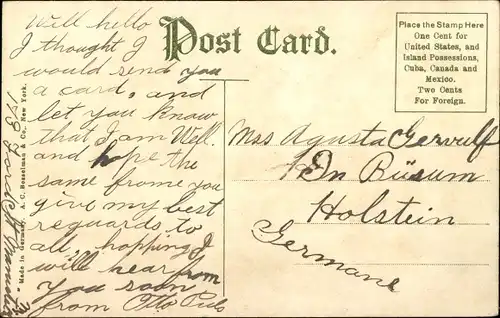 Post Card.
Place the Stamp Here
One Cent for
United States, and
Island Possessions,
Cuba, Canada and
Mexico.
Two Cents
For Foreign.
Well hello
I thought I
would send you
a card, and
let you know
that I am Well.
and hope the
same frome you
give my best
reguards to
all, hopping I
will hear from
you soon
from Otto
Mrs Agusta
In Büsum
Holstein
Germane
Made in Germany. A. C. Bosselman & Co., New York.